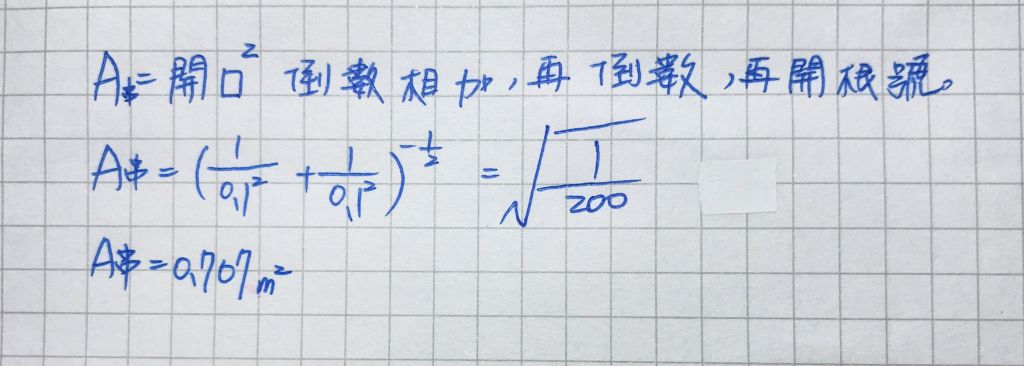 A串=開口² 倒數相加,再倒數,再開根號。
A串=(1/0.1²+1/0.1²)^(-1/2)=√(1/200)
A串=0.707m²